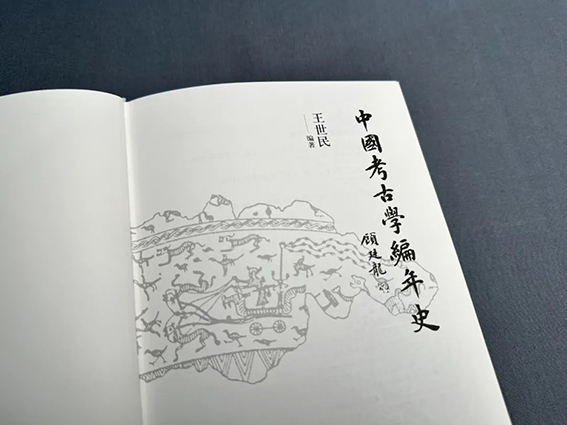 中國考古學編年史
顧廷龍
王世民
編著